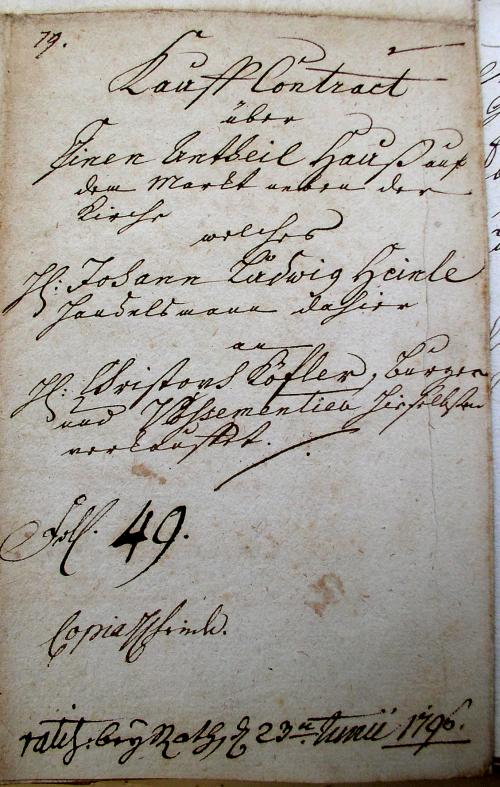 79.
Kauff Contract
über
Einen Antheil Hauß auf
dem Markt neben der
Kirche
welches
H: Johann Ludwig Heinle
Handelsmann dahier
an
H: Christoph Höfler, Burger
und Possementier hieselbsten
verkauffet.
Foll. 49.
Copia
ratif: bey Rath, d 23ten Junii 1796.